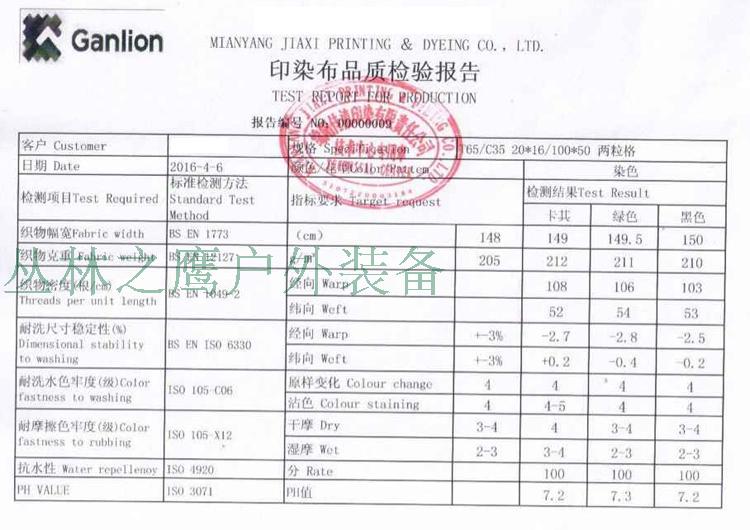 Ganlion
MIANYANG JIAXI PRINTING & DYEING CO., LTD.
印染布品质检验报告
TEST REPORT FOR PRODUCTION
报告编号 NO: 00000009
客户 Customer 规格 Specification T65/C35 20*16/100*50 两粒格
日期 Date 2016-4-6 颜色/花型Color Pattern 染色
检测项目Test Required 标准检测方法 Standard Test Method 指标要求 Target request 检测结果Test Result
卡其 绿色 黑色
织物幅宽Fabric width BS EN 1773 (cm) 148 149 149.5 150
织物克重 Fabric weight BS EN 12127 g/m² 205 212 211 210
织物密度(根/cm) Threads per unit length BS EN 1049-2 经向 Warp 108 106 103
纬向 Weft 52 54 53
耐洗尺寸稳定性(%) Dimensional stability to washing BS EN ISO 6330 经向 Warp +-3% -2.7 -2.8 -2.5
纬向 Weft +-3% +0.2 -0.4 -0.2
耐洗水色牢度(级)Color fastness to washing ISO 105-C06 原样变化 Colour change 4 4 4 4
沾色 Colour staining 4 4-5 4 4
耐摩擦色牢度(级)Color fastness to rubbing ISO 105-X12 干摩 Dry 3-4 4 4 3-4
湿摩 Wet 2-3 3-4 2-3 2-3
抗水性 Water repellenoy ISO 4920 分 Rate 100 100 100
PH VALUE ISO 3071 PH值 7.2 7.3 7.2
丛林之鹰户外装备